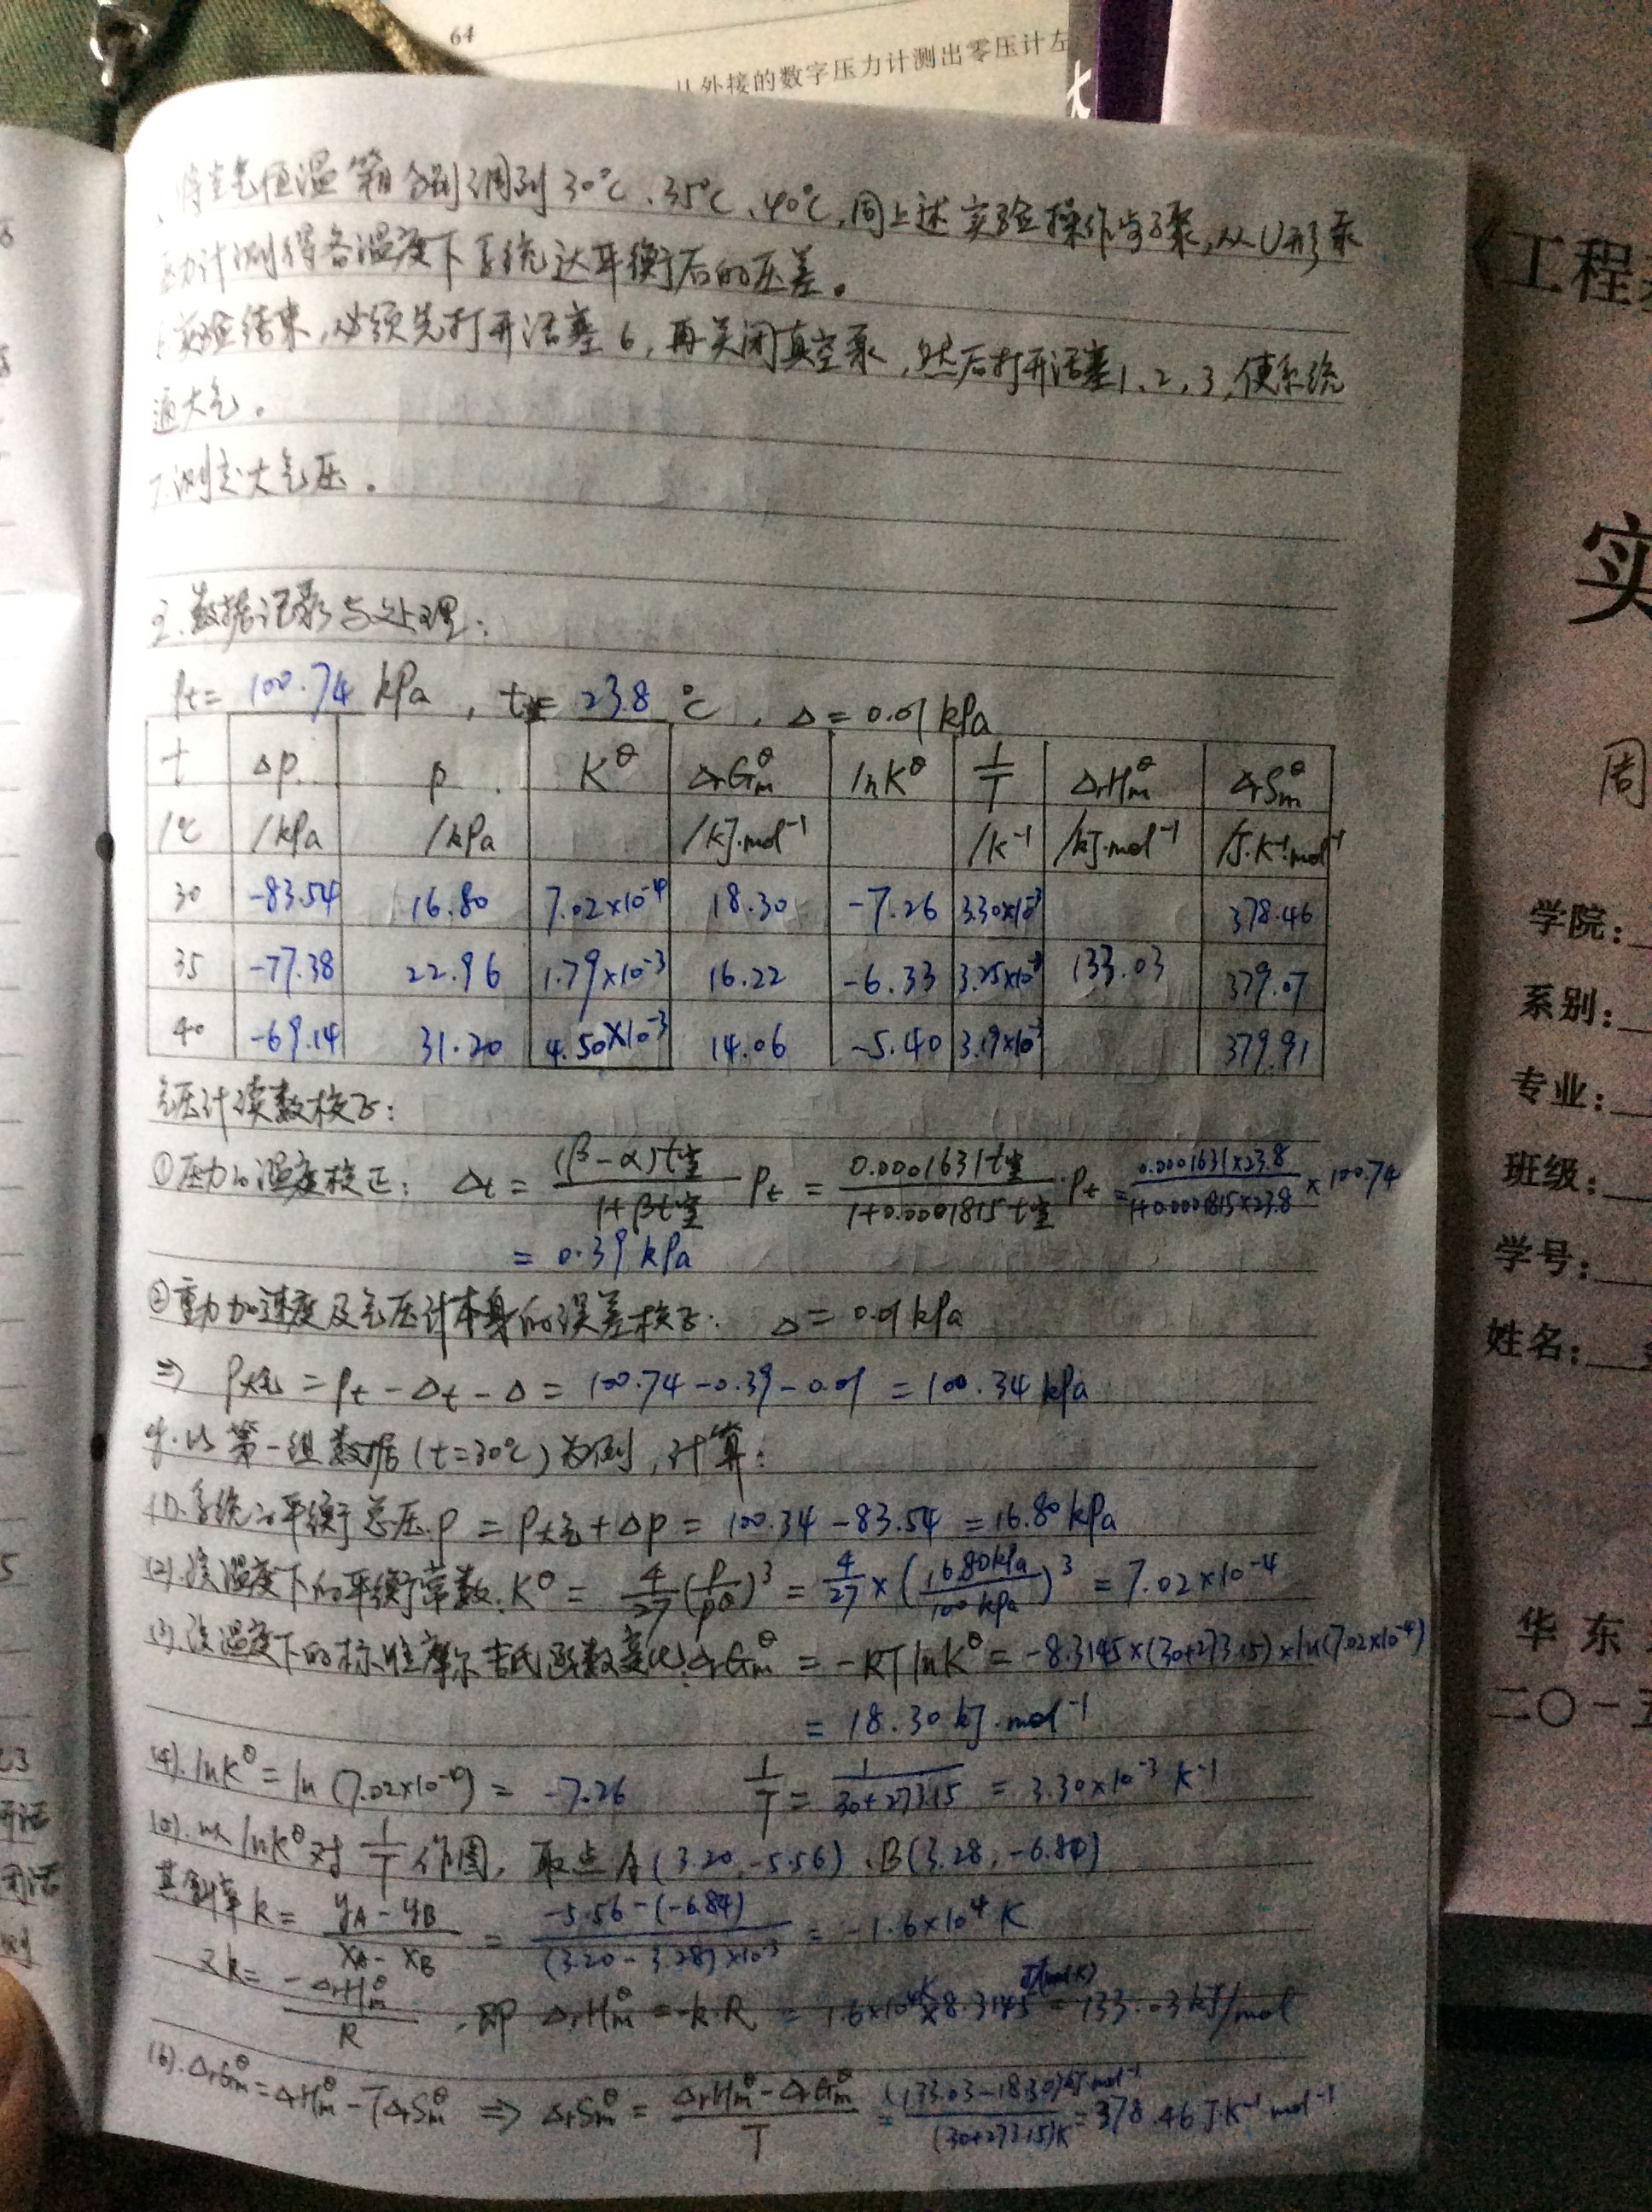 64
从外接的数字压力计测出零压计左
将空气恒温箱分别调到30℃、35℃、40℃,同上述实验操作步骤,从U形汞
压力计测得各温度下系统达平衡后的压差。
实验结束,必须先打开活塞6,再关闭真空泵,然后打开活塞1、2、3,使系统
通大气。
7.测定大气压。
数据记录与处理:
Pt= 100.74 kPa , t= 23.8 ℃ , Δ=0.01 kPa
t Δp p K^θ ΔrGm^θ lnK^θ 1/T ΔrHm^θ ΔrSm^θ
/℃ /kPa /kPa /kJ·mol⁻¹ /K⁻¹ /kJ·mol⁻¹ /J·K⁻¹·mol⁻¹
30 -83.54 16.80 7.02×10⁻⁴ 18.30 -7.26 3.30×10⁻³ 378.46
35 -77.38 22.96 1.79×10⁻³ 16.22 -6.33 3.25×10⁻³ 133.03 379.07
40 -69.14 31.20 4.50×10⁻³ 14.06 -5.40 3.19×10⁻³ 379.91
气压计读数校正:
①压力的温度校正: Δt = (β-α)t室/(1+βt室) Pt = 0.0001631t室/(1+0.0001815t室)·Pt = 0.0001631×23.8/(1+0.0001815×23.8)×100.74
= 0.39 kPa
②重力加速度及气压计本身的误差校正: Δ= 0.01 kPa
⇒ P大气 = Pt - Δt - Δ = 100.74-0.39-0.01 = 100.34 kPa
以第一组数据(t=30℃)为例,计算:
(1).系统的平衡总压 P = P大气+Δp = 100.34-83.54 =16.80 kPa
(2).该温度下的平衡常数.K^θ = 4/27(P/P^θ)³ = 4/27×(16.80kPa/100kPa)³ = 7.02×10⁻⁴
(3).该温度下的标准摩尔吉氏函数变化ΔrGm^θ = -RTlnK^θ = -8.3145×(30+273.15)×ln(7.02×10⁻⁴)
= 18.30 kJ·mol⁻¹
(4).lnK^θ=ln(7.02×10⁻⁴) = -7.26 1/T = 1/(30+273.15) = 3.30×10⁻³ K⁻¹
(5).以lnK^θ对1/T作图, 取点A(3.20,-5.56)、B(3.28,-6.84)
其斜率k= (yA-yB)/(xA-xB) = (-5.56-(-6.84))/((3.20-3.28)×10⁻³) = -1.6×10⁴ K
又k= -ΔrHm^θ/R ,即 ΔrHm^θ = -k·R = 1.6×10⁴K×8.3145J/(mol·K) = 133.03 kJ/mol
(6).ΔrGm^θ=ΔrHm^θ-TΔrSm^θ ⇒ ΔrSm^θ = (ΔrHm^θ-ΔrGm^θ)/T = (133.03-18.30)kJ·mol⁻¹/(30+273.15)K = 378.46 J·K⁻¹·mol⁻¹
《工程
实
周
学院:
系别:
专业:
班级:
学号:
姓名:
华东
二〇一五